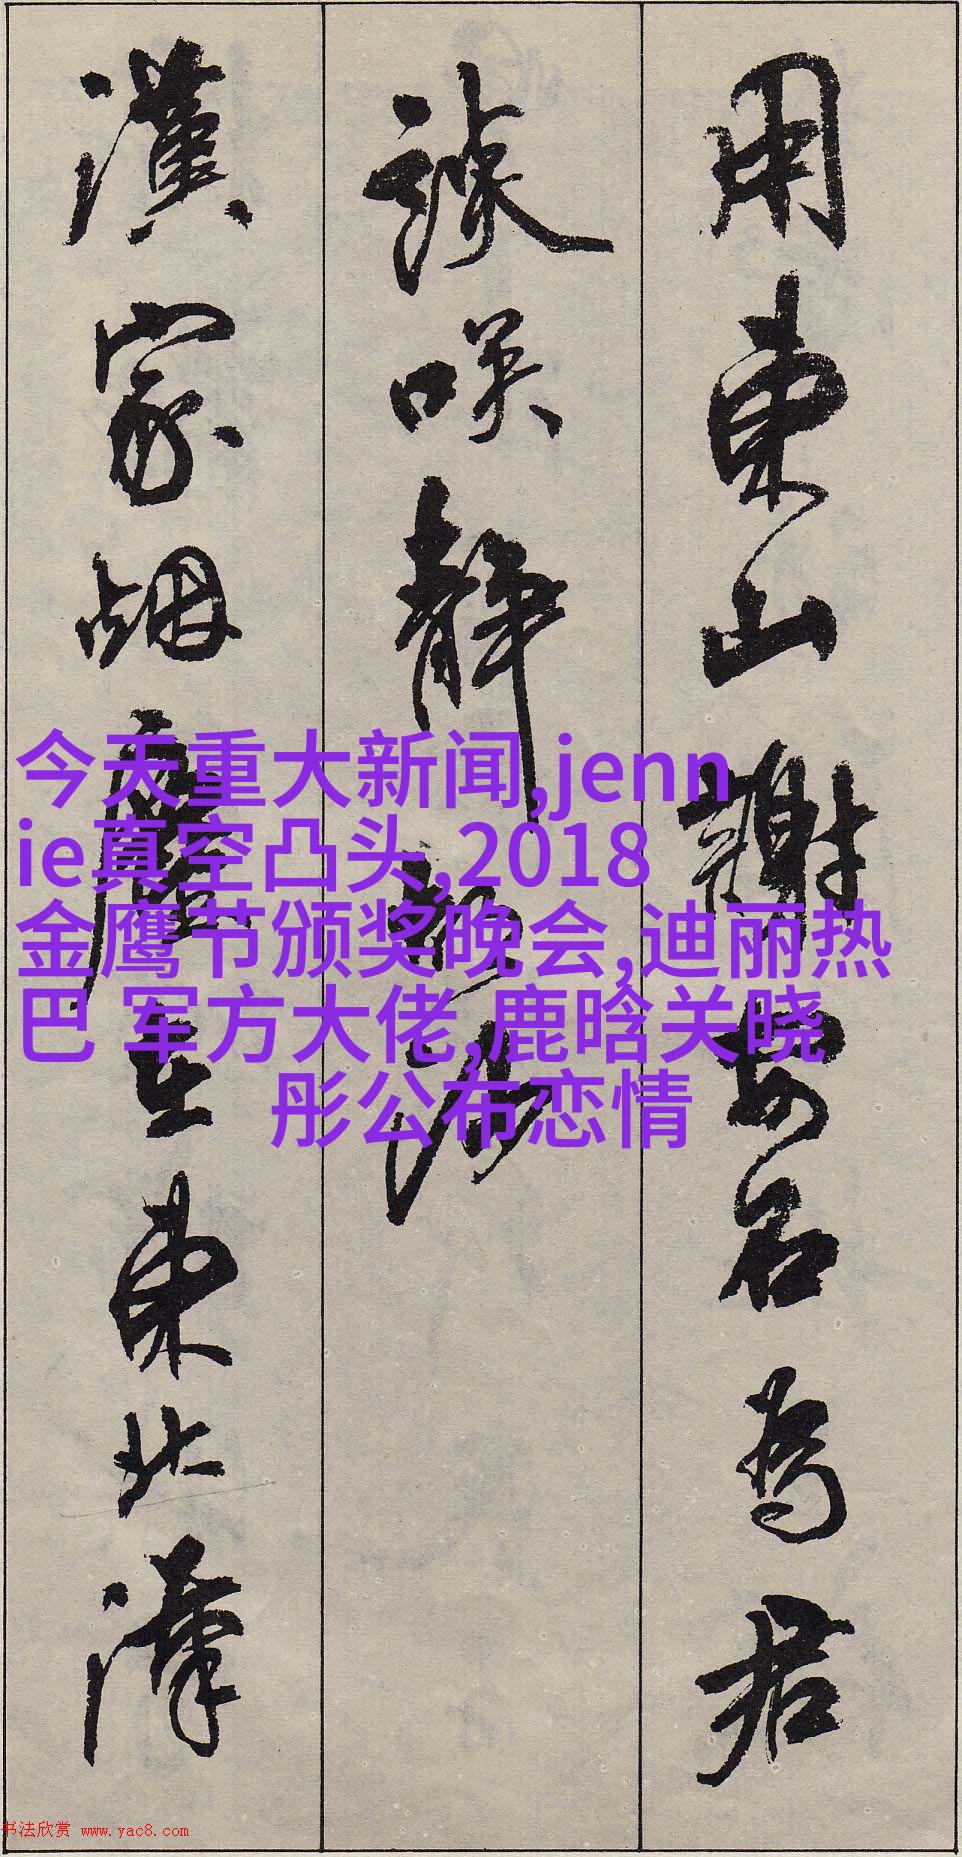 用東山謝安石為君
談咲静胡沙
漢家烟塵在東北漢
今天重大新闻,jenn
ie真空凸头,2018
金鹰节颁奖晚会,迪丽热
巴 军方大佬,鹿晗关晓
彤公布恋情
书法欣赏 www.yac8.com